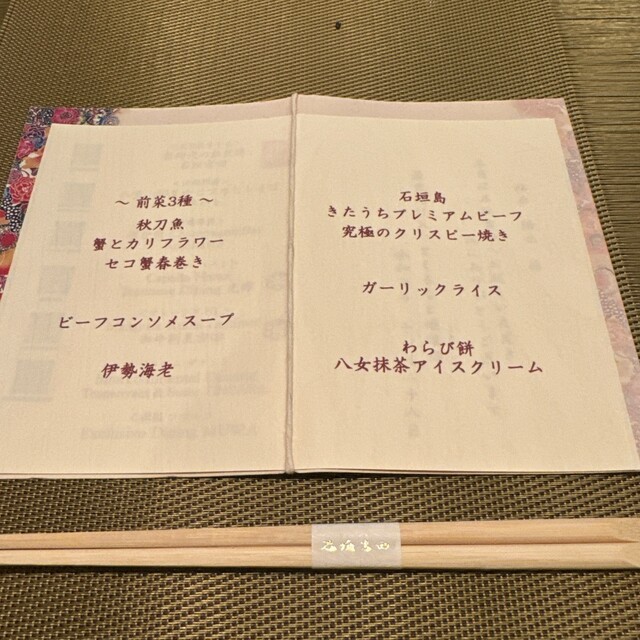 ～ 前菜3種 ～
秋刀魚
蟹とカリフラワー
セコ蟹春巻き
ビーフコンソメスープ
伊勢海老
石垣島
きたうちプレミアムビーフ
究極のクリスピー焼き
ガーリックライス
わらび餅
八女抹茶アイスクリーム